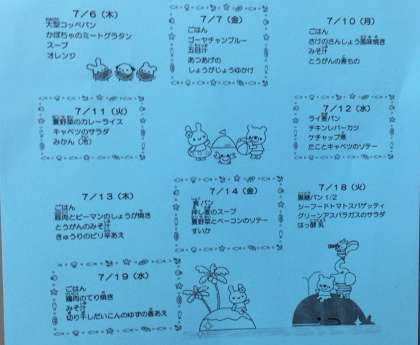 7/6（木）
大型コッペパン
かぼちゃのミートグラタン
スープ
オレンジ
7/7（金）
ごはん
ゴーヤチャンプルー
五目汁
あつあげの
しょうがじょうゆかけ
7/10（月）
ごはん
さけのさんしょう風味焼き
みそ汁
とうがんの煮もの
7/11（火）
夏野菜のカレーライス
キャベツのサラダ
みかん（冷）
7/12（水）
ライ麦パン
チキンレバーカツ
ケチャップ煮
たことキャベツのソテー
7/13（木）
ごはん
豚肉とピーマンのしょうが焼き
とうがんのみそ汁
きゅうりのピリ辛あえ
7/14（金）
パン
押し麦のスープ
夏野菜とベーコンのソテー
すいか
7/18（火）
黒糖パン 1/2
シーフードトマトスパゲッティ
グリーンアスパラガスのサラダ
はっ酵乳
7/19（水）
ごはん
鶏肉のてり焼き
みそ汁
切り干しだいこんのゆずの香あえ